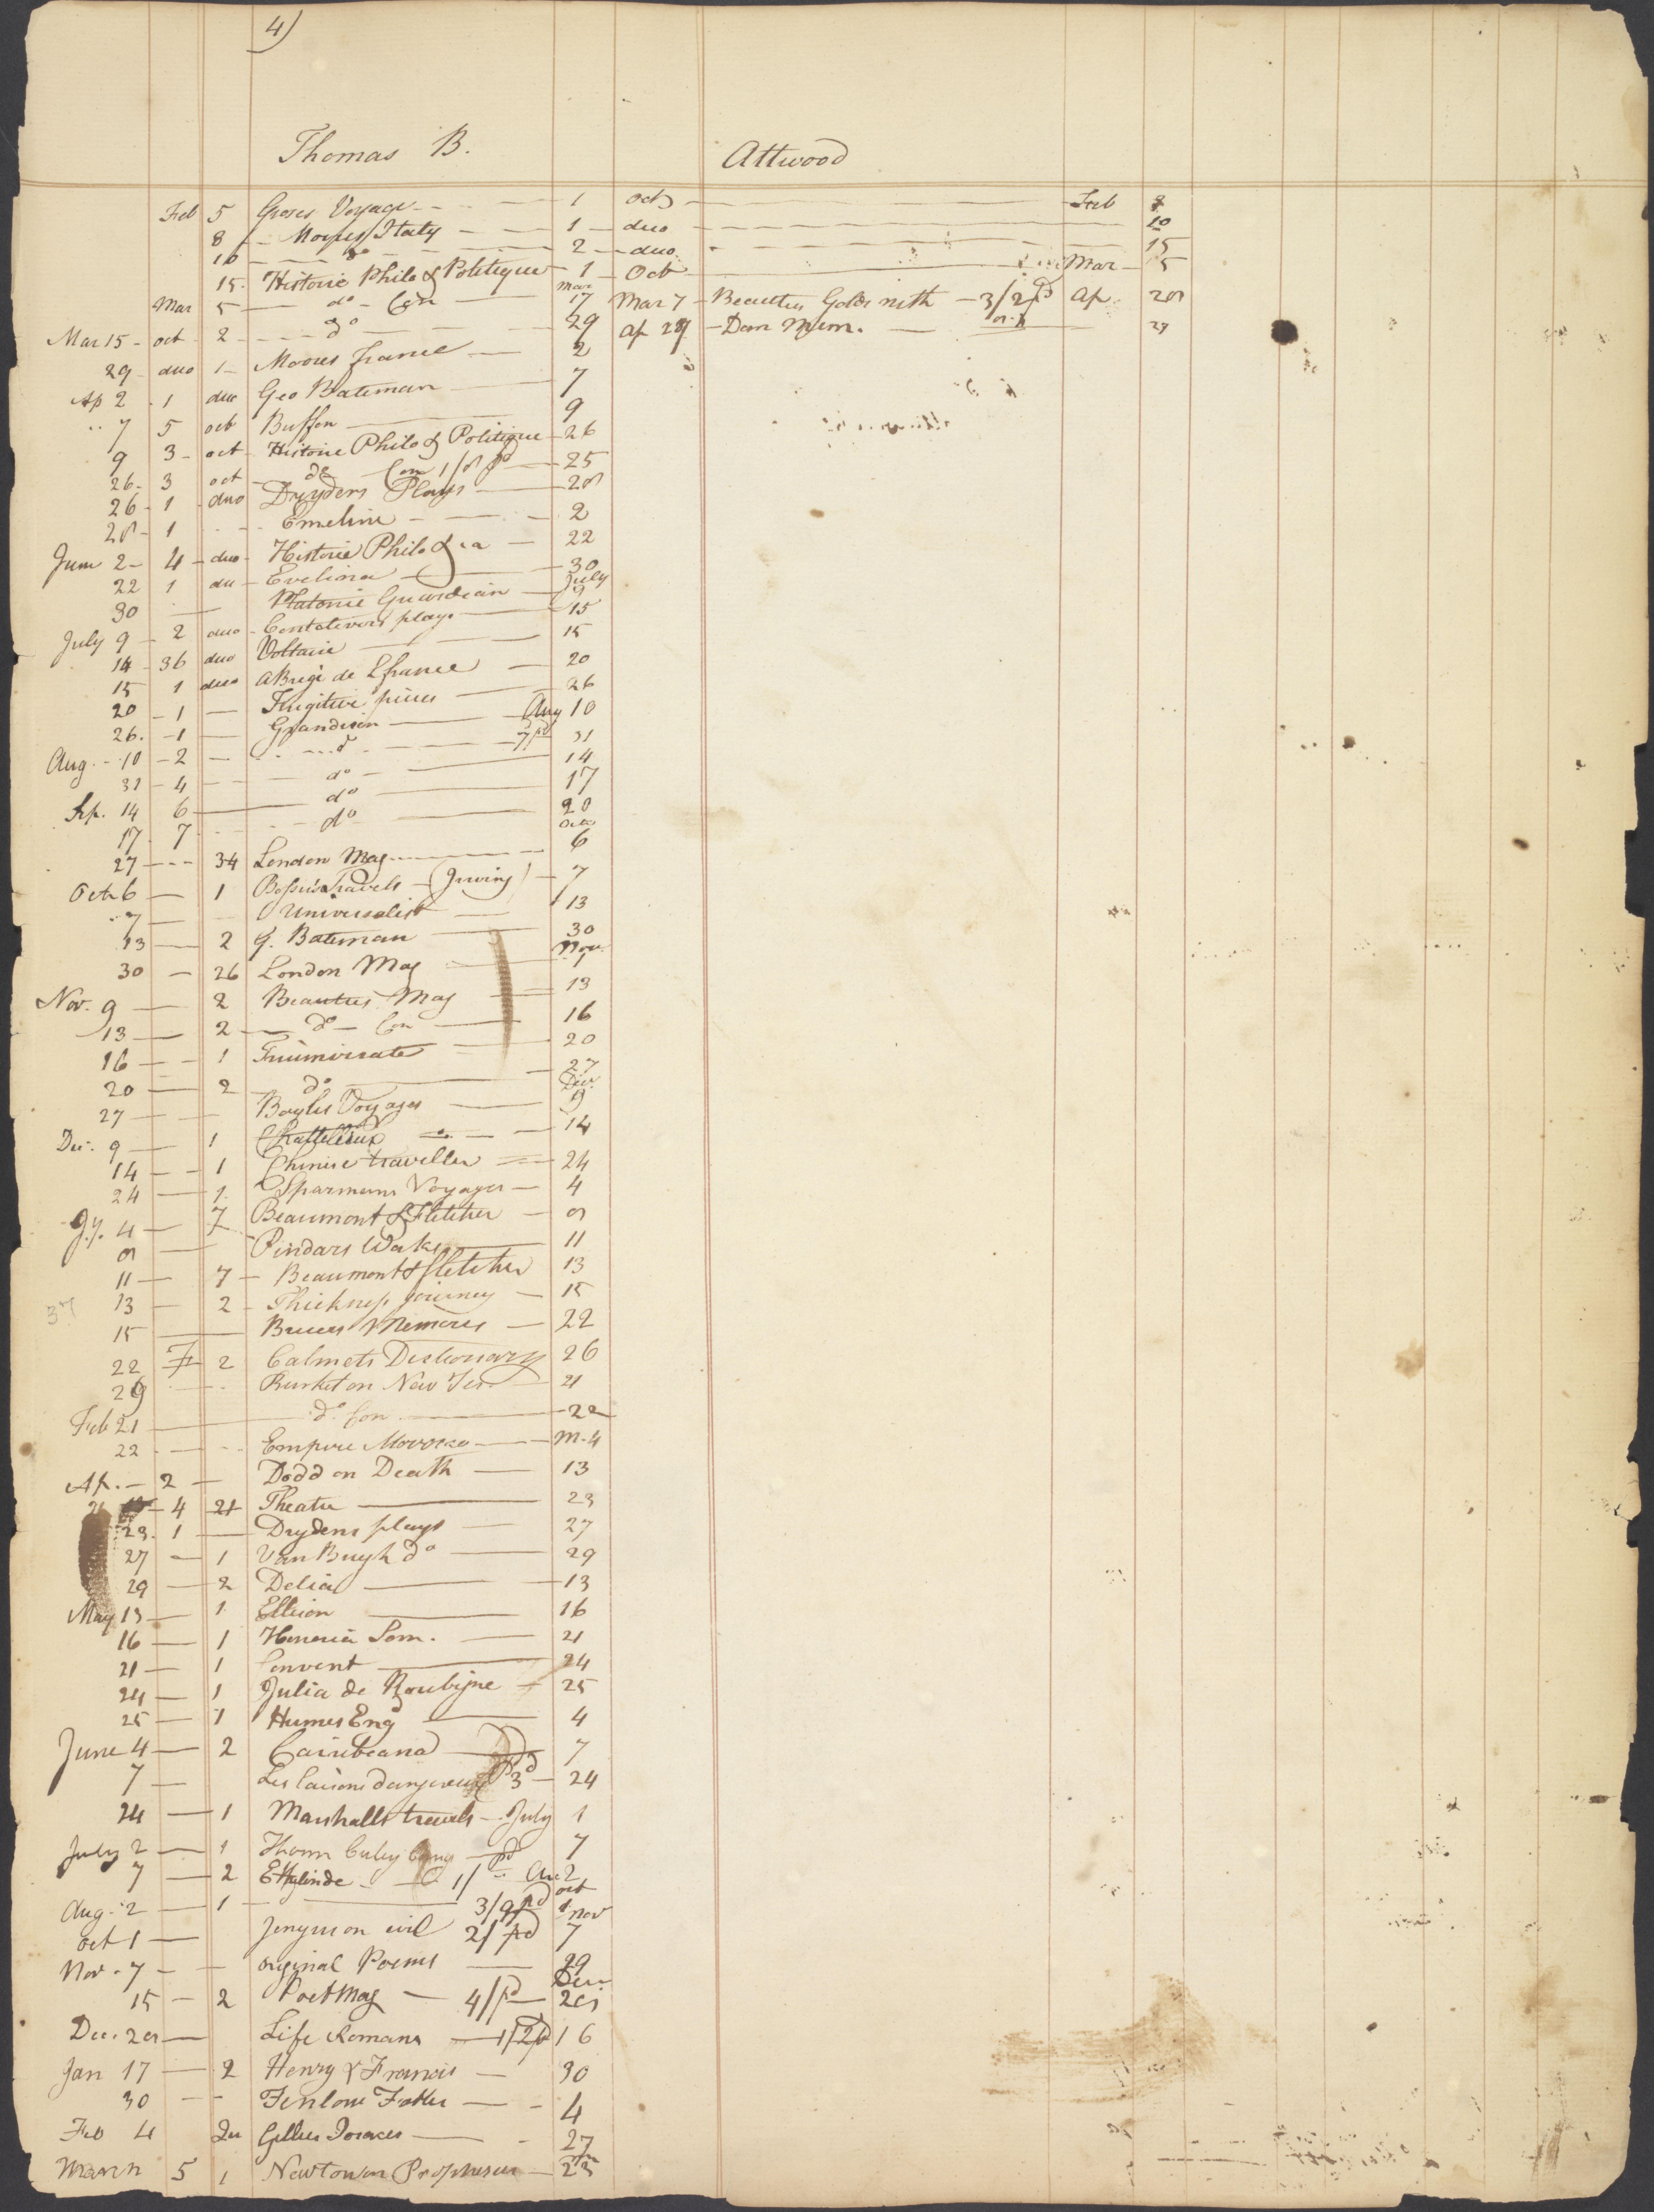 4)
Thomas B. Attwood
Feb 5 Groses Voyage 1 oct Feb 8
8 Moores Italy 1 duo 10
10 do 2 duo 15
15 Historie Philo & Politique 1 Oct Mar 5
Mar 5 do Con Mar 17 Mar 7 Beauties Goldsmith 3/2 pd Ap 28
Mar 15 oct 2 do 29 ap 29 Dom Mem. 29
29 duo 1 Moores france 2
Ap 2 1 duo Geo Bateman 7
7 5 oct Buffon 9
9 3 oct Historie Philo & Politique 26
26 3 oct do Con 1/8 pd 25
26 1 duo Drydens Plays 28
28 1 Emeline 2
June 2 4 duo Historie Philo & ca 22
22 1 du Evelina 30
30 Platonic Guardian July 9
July 9 2 duo Centelivers plays 15
14 36 duo Voltaire 15
15 1 duo aBregi de Lfrance 20
20 1 Fugitive pieces 26
26 1 Grandison Aug 10
Aug 10 2 do 7 pd 31
31 4 do 14
Sep. 14 6 do 17
17 7 do 28
27 34 London Mag Octo 6
Oct 6 1 Bossus Travels (Irving) 7
7 Universalist 13
13 2 G. Bateman 30
30 26 London Mag Nov
Nov. 9 2 Beauties Mag 13
13 2 do Con 16
16 1 Triumvirate 20
20 2 do 27
27 Boyles Voyages Dec 9
Dec. 9 1 Chattelleux 14
14 1 Chinise traveller 24
24 1 Sparmans Voyages 4
Jy. 4 7 Beaumont & Fletcher 8
8 Pindars Works 11
11 7 Beaumont & fletcher 13
37 13 2 Thickness journey 15
15 Bruces Memoirs 22
22 2 Calmets Dictionary 26
26 Burket on New Tes 21
Feb 21 do Con 22
22 Empire Morocco M. 4
Ap. 2 Dodd on Death 13
21 4 21 Theatre 23
23 1 Drydens plays 27
27 1 Van Brugh do 29
29 2 Delia 13
May 13 1 Ellison 16
16 1 Honoria Som. 21
21 1 Convent 24
24 1 Julia de Roubigne 25
25 1 Humes Eng 4
June 4 2 Caribeana 7
7 Les laisons dangereux pd 3 24
24 1 Marshalls travels July 1
July 2 1 Thom pd 7
7 2 Ethelinde 1/ Au 2
Aug. 2 1 3/9 pd oct 1
oct 1 Jenyns on evil 2/ pd nov 7
Nov. 7 original Poems 29
15 2 Poet Mag 4/ pd Decr 28
Dec. 28 Life Romans 1/2 pd 16
Jan 17 2 Henry & Francis 30
30 Fenlove Father 4
Feb 4 2u Gillies 27
March 5 1 Newton on Prophesies 23